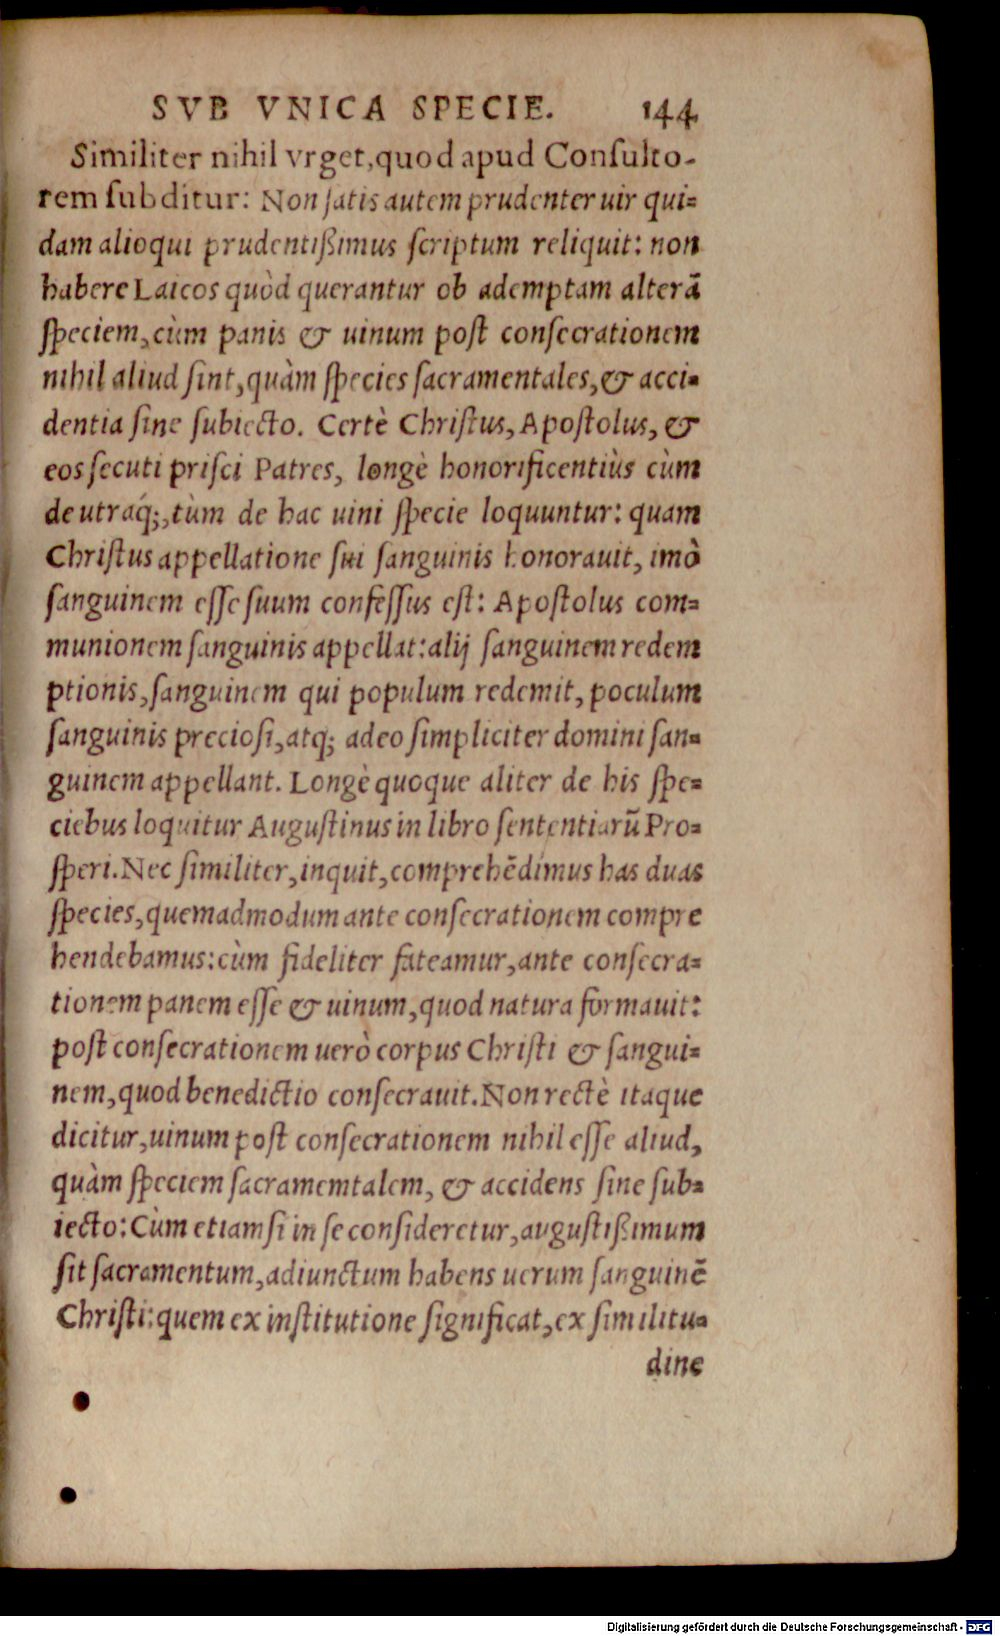 SVB VNICA SPECIE. 144
Similiter nihil vrget, quod apud Consulto-
rem subditur: Non satis autem prudenter uir qui-
dam alioqui prudentißimus scriptum reliquit: non
habere Laicos quòd querantur ob ademptam alterã
speciem, cùm panis & uinum post consecrationem
nihil aliud sint, quàm species sacramentales, & acci-
dentia sine subiecto. Certè Christus, Apostolus, &
eos secuti prisci Patres, longè honorificentiùs cùm
de utráq;, tùm de hac uini specie loquuntur: quam
Christus appellatione sui sanguinis honorauit, imò
sanguinem esse suum confessus est: Apostolus com-
munionem sanguinis appellat: alij sanguinem redem
ptionis, sanguinem qui populum redemit, poculum
sanguinis preciosi, atq; adeo simpliciter domini san-
guinem appellant. Longè quoque aliter de his spe-
ciebus loquitur Augustinus in libro sententiarũ Pro-
speri. Nec similiter, inquit, comprehẽdimus has duas
species, quemadmodum ante consecrationem compre
hendebamus: cùm fideliter fateamur, ante consecra-
tionem panem esse & uinum, quod natura formauit:
post consecrationem uerò corpus Christi & sangui-
nem, quod benedictio consecrauit. Non rectè itaque
dicitur, uinum post consecrationem nihil esse aliud,
quàm speciem sacramemtalem, & accidens sine sub-
iecto: Cùm etiamsi in se consideretur, augustißimum
sit sacramentum, adiunctum habens uerum sanguinẽ
Christi: quem ex institutione significat, ex similitu-
dine
Digitalisierung gefördert durch die Deutsche Forschungsgemeinschaft - DFG